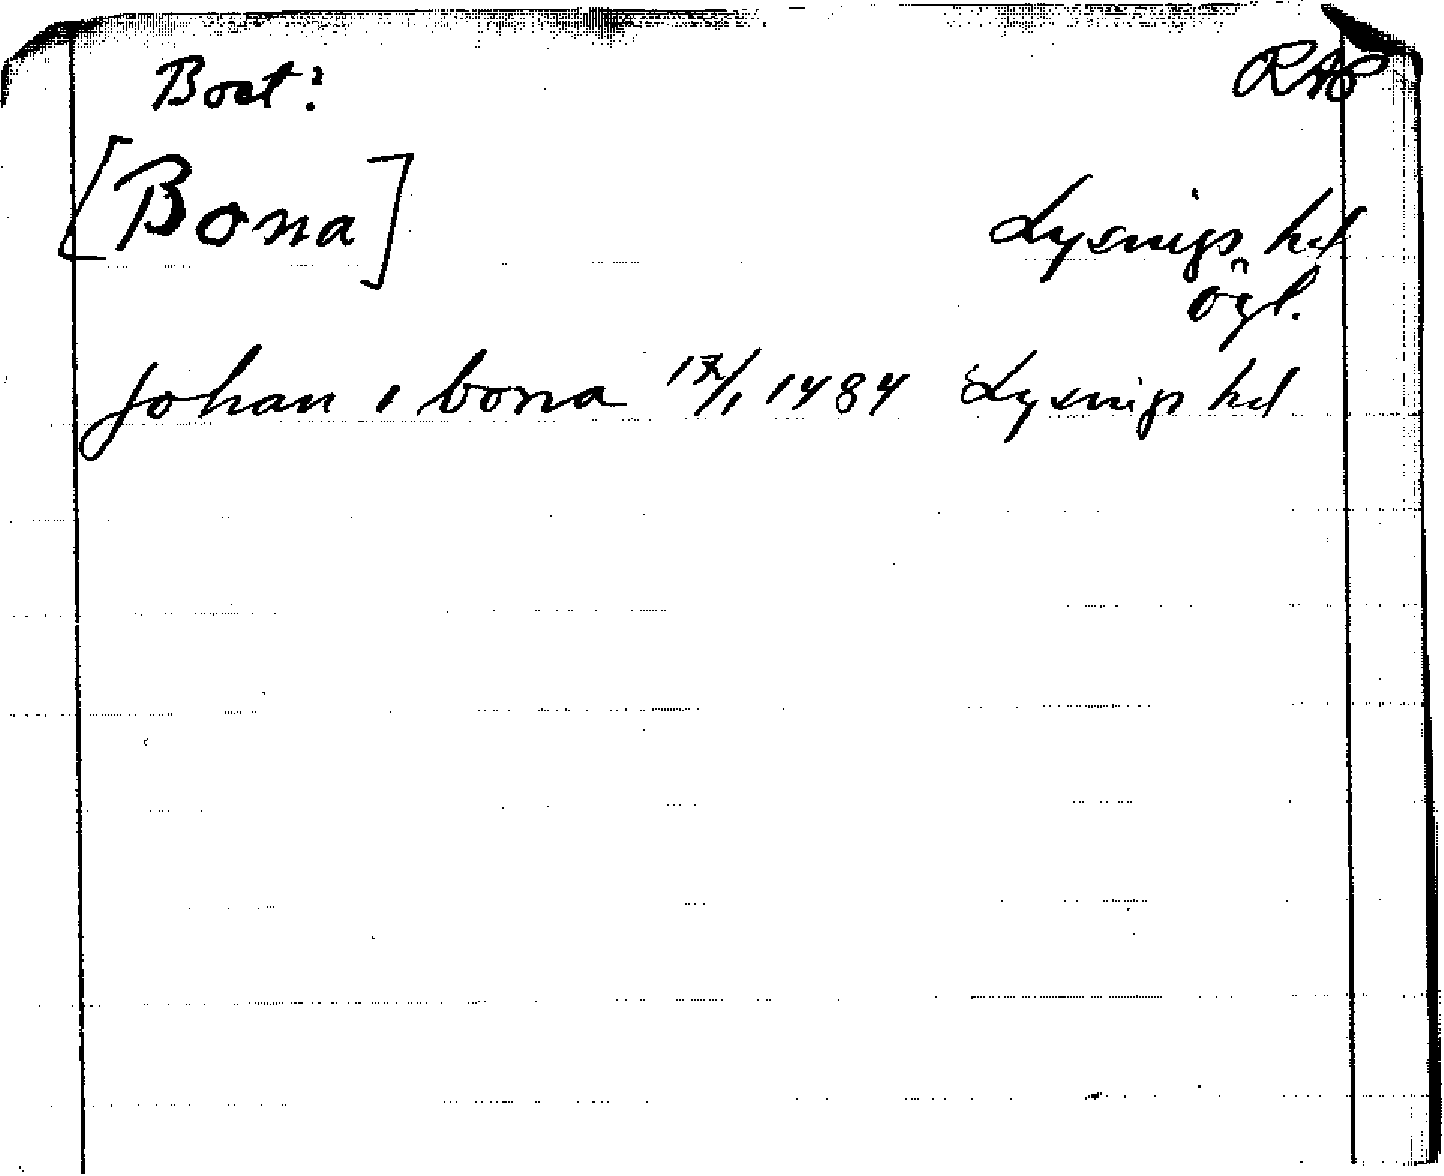 Boet:
[Bona]
Lysings hd
Ögl.
Johan i bona 17/1 1484 Lysings hd